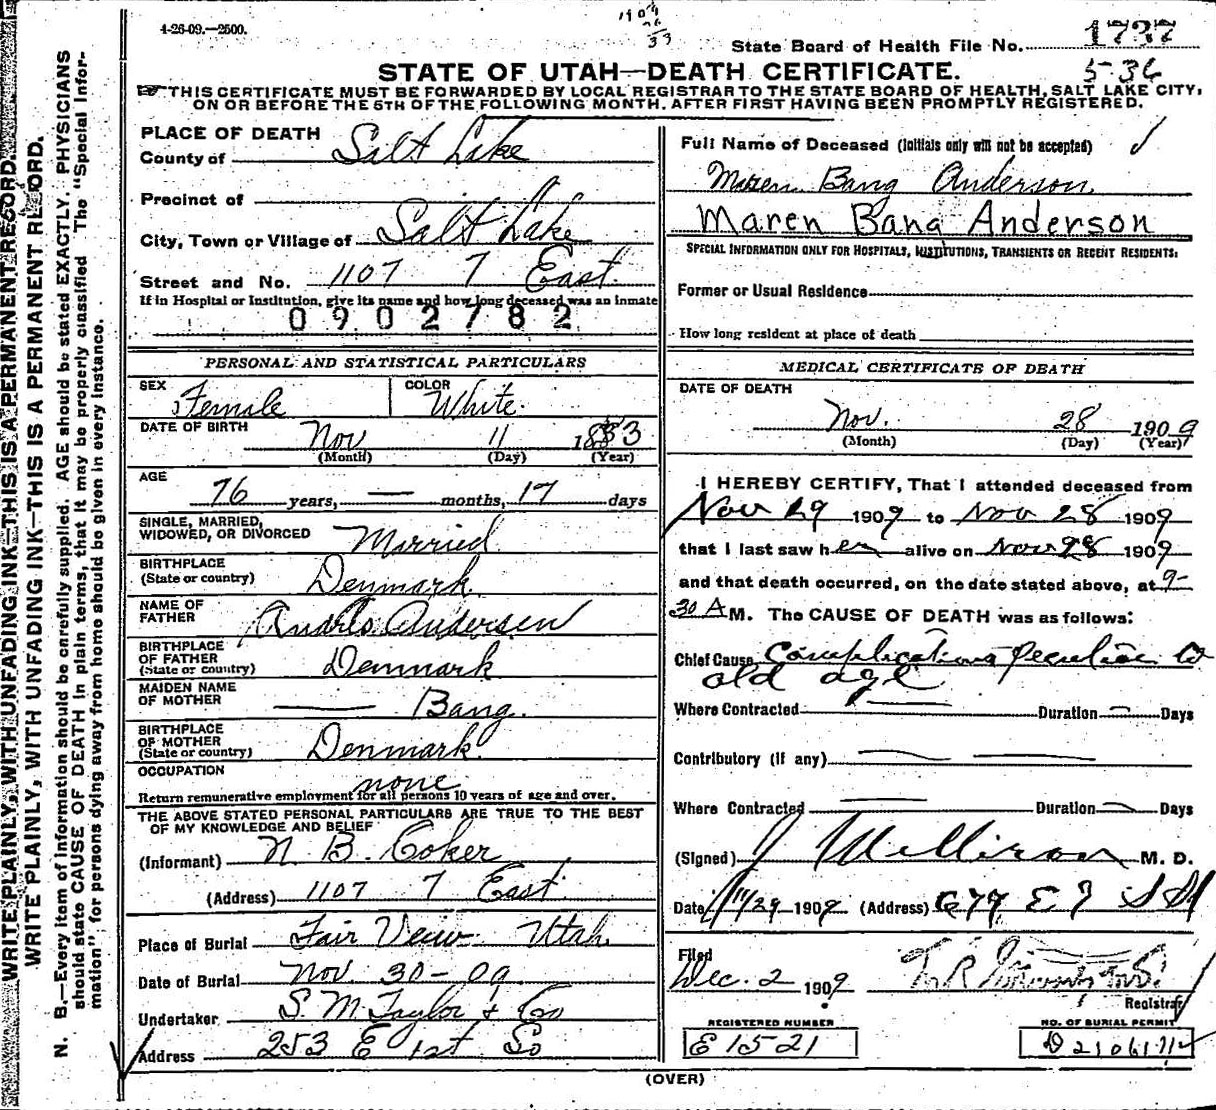 4-26-09.—2500.
1909
76
33
State Board of Health File No. 1737
5-36
STATE OF UTAH—DEATH CERTIFICATE.
THIS CERTIFICATE MUST BE FORWARDED BY LOCAL REGISTRAR TO THE STATE BOARD OF HEALTH, SALT LAKE CITY,
ON OR BEFORE THE 5TH OF THE FOLLOWING MONTH. AFTER FIRST HAVING BEEN PROMPTLY REGISTERED.
WRITE PLAINLY, WITH UNFADING INK—THIS IS A PERMANENT RECORD.
WRITE PLAINLY, WITH UNFADING INK—THIS IS A PERMANENT RECORD.
N. B.—Every item of information should be carefully supplied. AGE should be stated EXACTLY. PHYSICIANS
should state CAUSE OF DEATH in plain terms, that it may be properly classified The "Special Infor-
mation" for persons dying away from home should be given in every instance.
PLACE OF DEATH
County of Salt Lake
Precinct of
City, Town or Village of Salt Lake
Street and No. 1107 7 East.
If in Hospital or Institution, give its name and how long deceased was an inmate
0902782
PERSONAL AND STATISTICAL PARTICULARS
SEX Female
COLOR White.
DATE OF BIRTH Nov 11 1833
(Month) (Day) (Year)
AGE
76 years, — months, 17 days
SINGLE, MARRIED,
WIDOWED, OR DIVORCED Married
BIRTHPLACE
(State or country) Denmark
NAME OF
FATHER Andrés Andersen
BIRTHPLACE
OF FATHER
(State or country) Denmark
MAIDEN NAME
OF MOTHER — Bang.
BIRTHPLACE
OF MOTHER
(State or country) Denmark
OCCUPATION none
Return remunerative employment for all persons 10 years of age and over.
THE ABOVE STATED PERSONAL PARTICULARS ARE TRUE TO THE BEST
OF MY KNOWLEDGE AND BELIEF
(Informant) N. B. Coker
(Address) 1107 7 East
Place of Burial Fair View Utah
Date of Burial Nov. 30-09
Undertaker S. M. Taylor & Co
Address 253 E 1st So
Full Name of Deceased (Initials only will not be accepted)
Maren Bang Anderson
Maren Bang Anderson
SPECIAL INFORMATION ONLY FOR HOSPITALS, INSTITUTIONS, TRANSIENTS OR RECENT RESIDENTS:
Former or Usual Residence
How long resident at place of death
MEDICAL CERTIFICATE OF DEATH
DATE OF DEATH
Nov. 28 1909
(Month) (Day) (Year)
I HEREBY CERTIFY, That I attended deceased from
Nov 29 1909 to Nov 28 1909
that I last saw her alive on Nov 28 1909
and that death occurred, on the date stated above, at 9-
30 A M. The CAUSE OF DEATH was as follows:
Chief Cause Complications peculiar to
old age
Where Contracted — Duration — Days
Contributory (if any) — —
Where Contracted — Duration — Days
(Signed) J Mellison M. D.
Date 11/29 1909 (Address) 677 E 7 S St
Filed
Dec. 2 1909
Registrar
REGISTERED NUMBER
E 1521
NO. OF BURIAL PERMIT
(OVER)